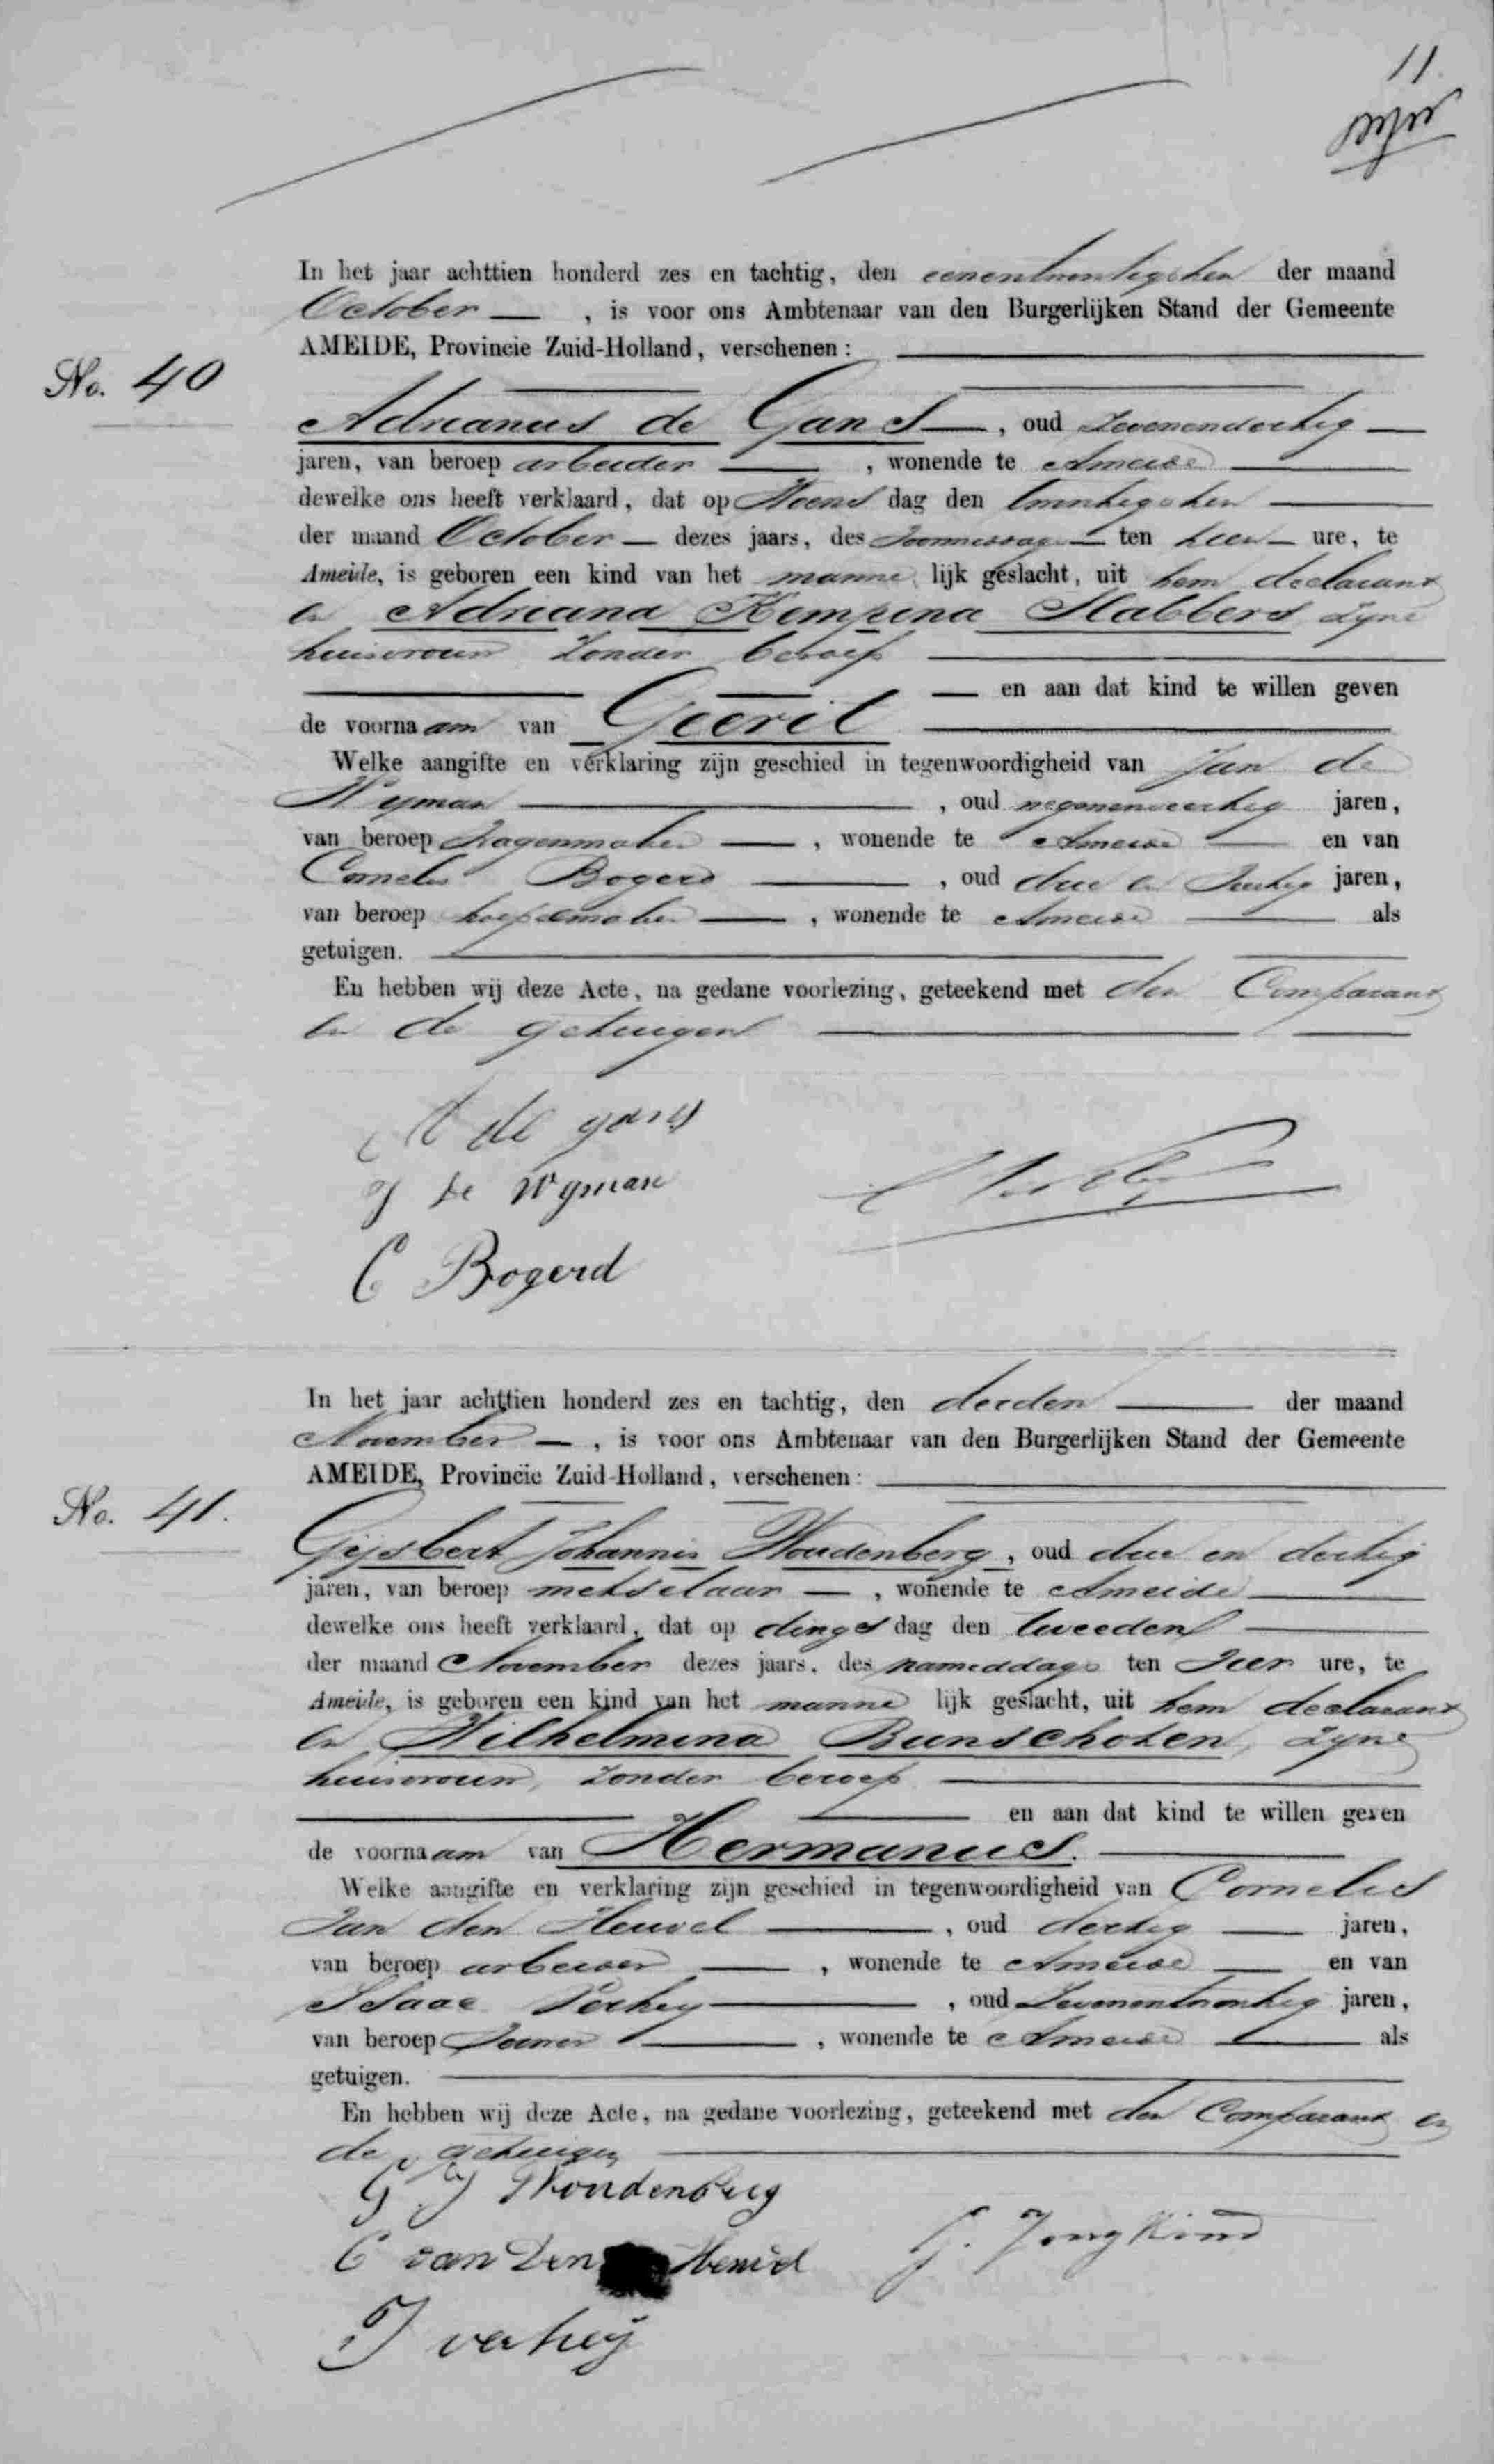 11
In het jaar achttien honderd zes en tachtig, den eenentwintigsten der maand
October, is voor ons Ambtenaar van den Burgerlijken Stand der Gemeente
AMEIDE, Provincie Zuid-Holland, verschenen:
No. 40
Adrianus de Gans, oud zevenendertig
jaren, van beroep arbeider, wonende te Ameide
dewelke ons heeft verklaard, dat op Woensdag den twintigsten
der maand October dezes jaars, des voormiddags ten tien ure, te
Ameide, is geboren een kind van het mannelijk geslacht, uit hem declarant
en Adriana Kempina Slabbers zijne
huisvrouw zonder beroep
en aan dat kind te willen geven
de voornaam van Geerit
Welke aangifte en verklaring zijn geschied in tegenwoordigheid van Jan de
Wyman, oud negenenveertig jaren,
van beroep wagenmaker, wonende te Ameide en van
Cornelis Bogerd, oud drie en veertig jaren,
van beroep hoepelmaker, wonende te Ameide als
getuigen.
En hebben wij deze Acte, na gedane voorlezing, geteekend met den Comparant
en de getuigen
A de gans
J de Wyman
C Bogerd
In het jaar achttien honderd zes en tachtig, den derden der maand
November, is voor ons Ambtenaar van den Burgerlijken Stand der Gemeente
AMEIDE, Provincie Zuid-Holland, verschenen:
No. 41.
Gijsbert Johannis Woudenberg, oud drie en dertig
jaren, van beroep metselaar, wonende te Ameide
dewelke ons heeft verklaard, dat op dingsdag den tweeden
der maand November dezes jaars, des nameddags ten vier ure, te
Ameide, is geboren een kind van het mannelijk geslacht, uit hem declarant
en Wilhelmina Bunschoten, zijne
huisvrouw, zonder beroep
en aan dat kind te willen geven
de voornaam van Hermanus.
Welke aangifte en verklaring zijn geschied in tegenwoordigheid van Cornelis
van den Heuvel, oud dertig jaren,
van beroep arbeider, wonende te Ameide en van
Isaac Verhey, oud zevenentwintig jaren,
van beroep, wonende te Ameide als
getuigen.
En hebben wij deze Acte, na gedane voorlezing, geteekend met den Comparant en
de getuigen
G J Woudenberg
C van Den Heuvel G. Jongkind
I verhey